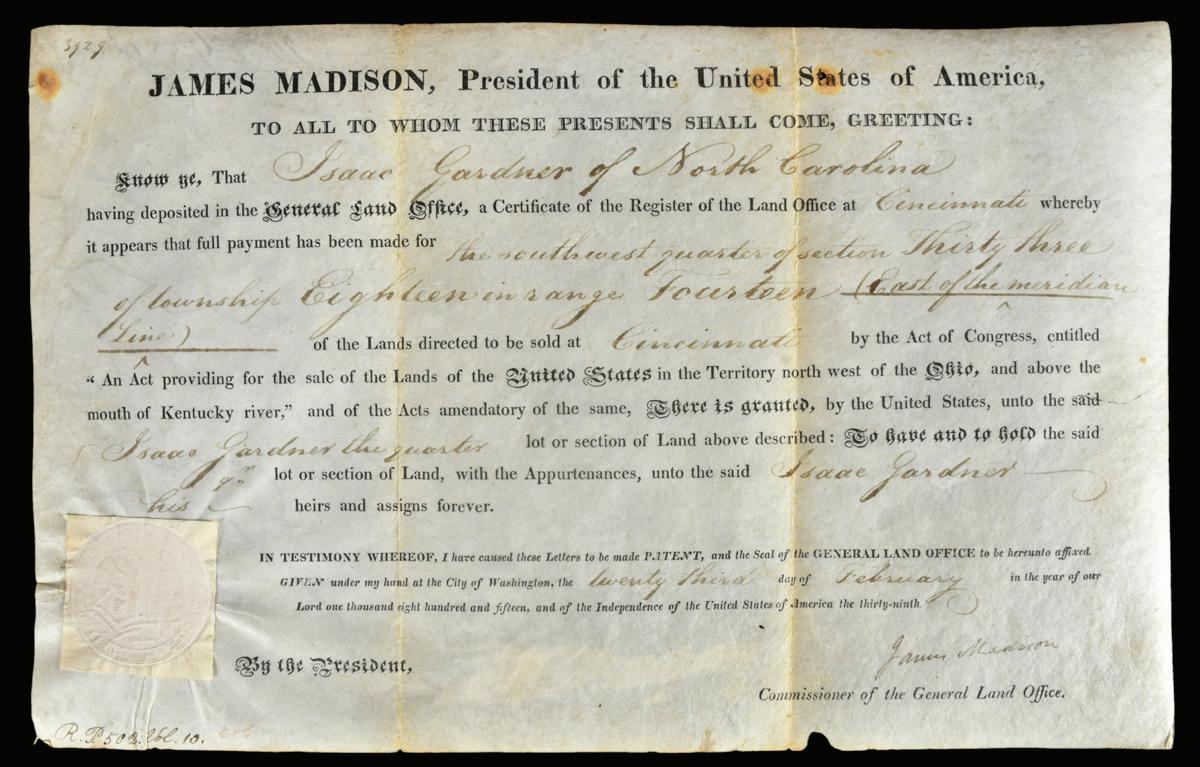 3929
JAMES MADISON, President of the United States of America,
TO ALL TO WHOM THESE PRESENTS SHALL COME, GREETING:
Know ye, That Isaac Gardner of North Carolina
having deposited in the General Land Office, a Certificate of the Register of the Land Office at Cincinnati whereby
it appears that full payment has been made for the southwest quarter of section Thirty three
of township Eighteen in range Fourteen (East of the meridian
Line) of the Lands directed to be sold at Cincinnati by the Act of Congress, entitled
“An Act providing for the sale of the Lands of the United States in the Territory north west of the Ohio, and above the
mouth of Kentucky river,” and of the Acts amendatory of the same, There is granted, by the United States, unto the said
Isaac Gardner the quarter lot or section of Land above described: To have and to hold the said
qr lot or section of Land, with the Appurtenances, unto the said Isaac Gardner
his heirs and assigns forever.
IN TESTIMONY WHEREOF, I have caused these Letters to be made PATENT, and the Seal of the GENERAL LAND OFFICE to be hereunto affixed.
GIVEN under my hand at the City of Washington, the twenty third day of February in the year of our
Lord one thousand eight hundred and fifteen, and of the Independence of the United States of America the thirty-ninth.
James Madison
By the President,
Commissioner of the General Land Office.
R. P. 502. Vol. 10.